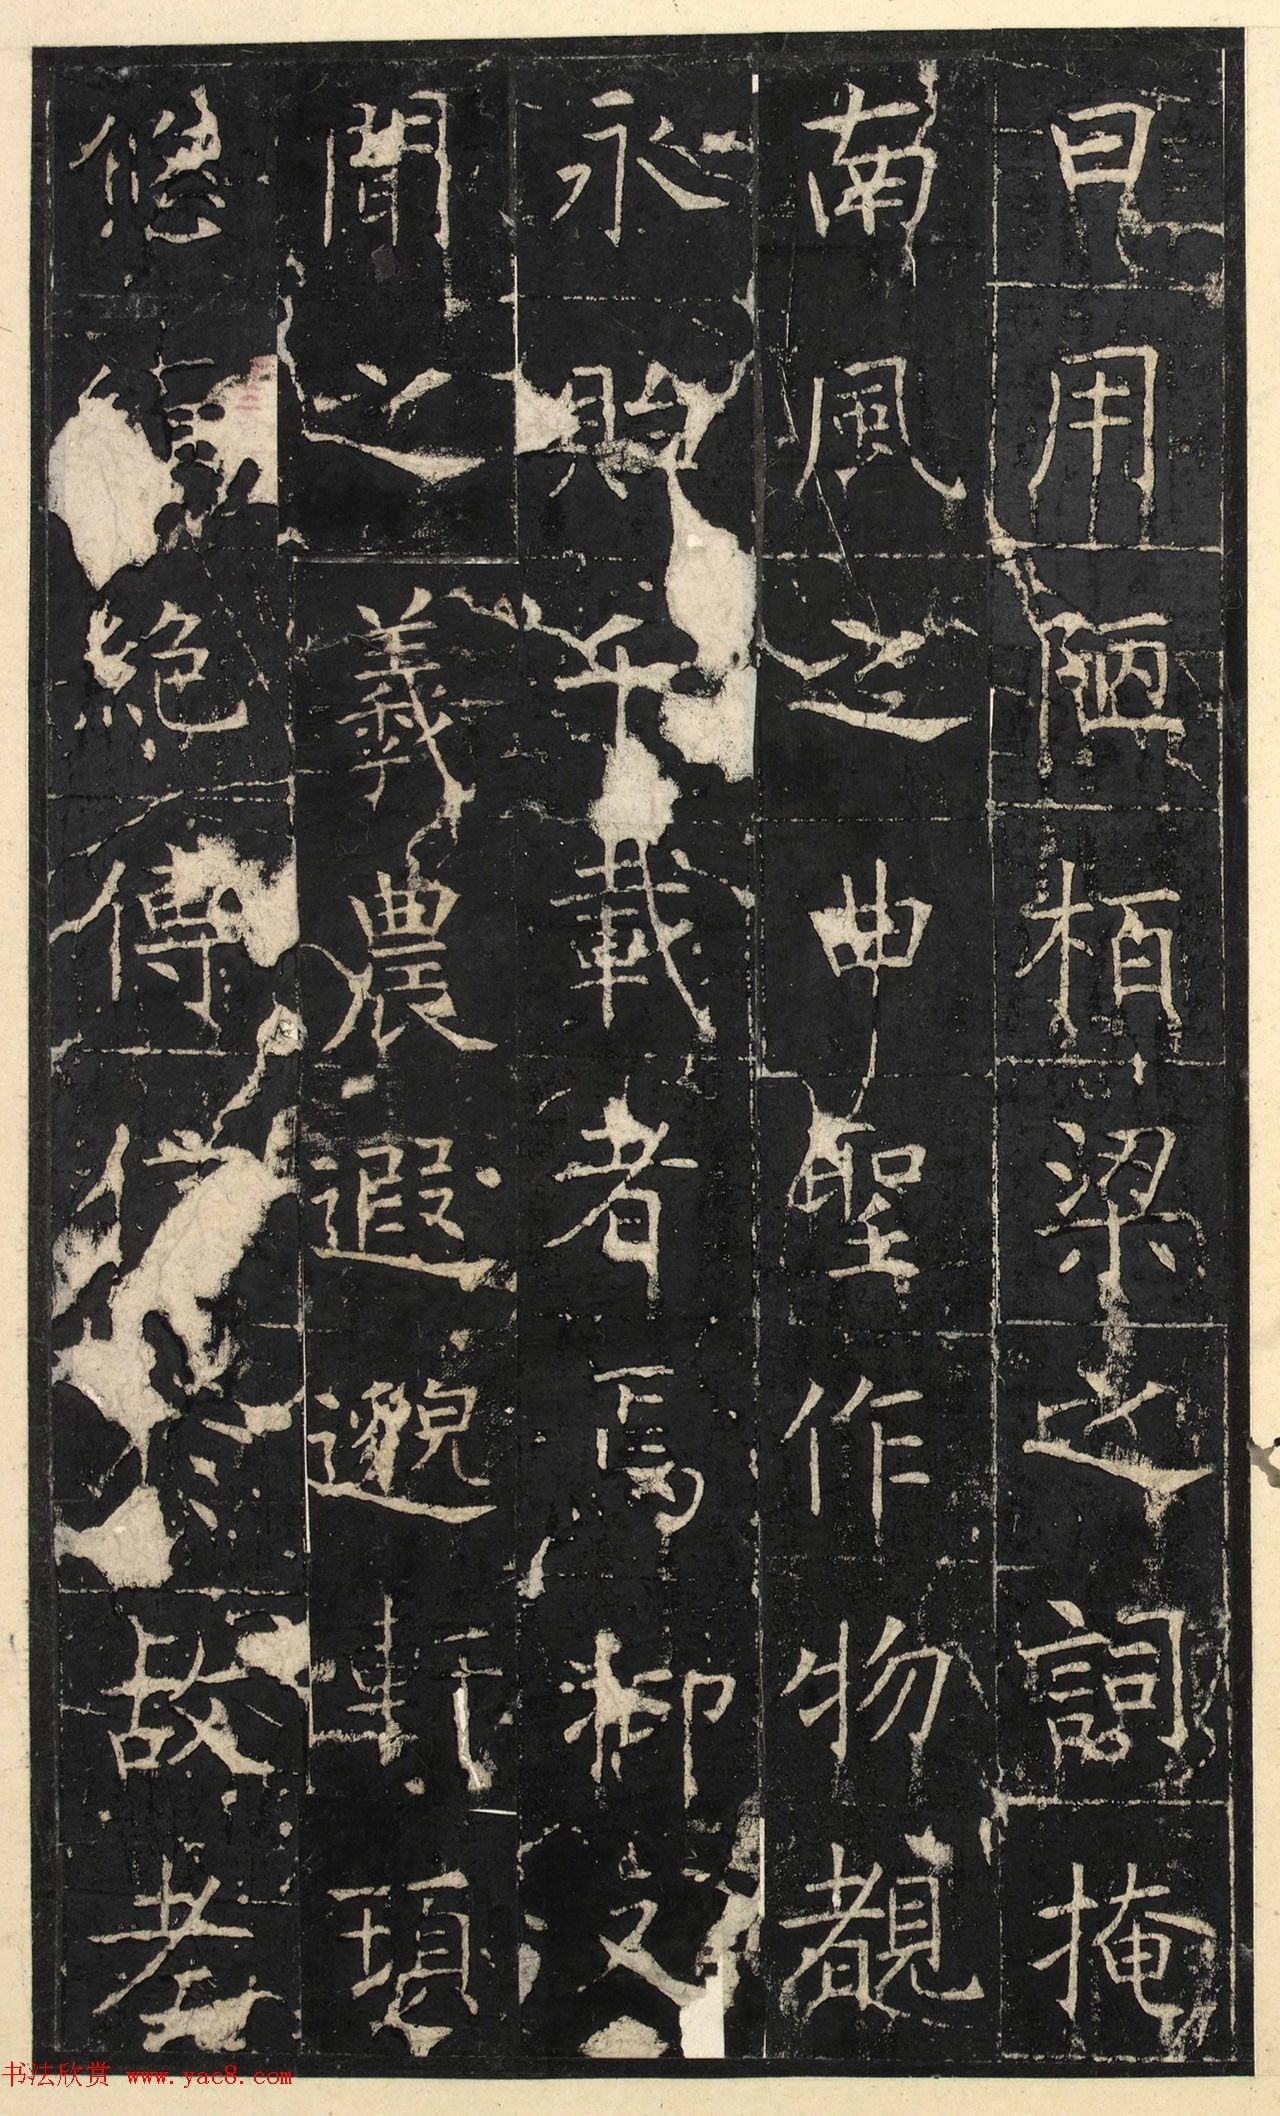 用陋栢梁之詞掩
南風之曲聖作物覩
永貽千載者焉抑又
聞之羲農遐邈軒頊
悠絶傳於故老
书法欣赏 www.yac8.com